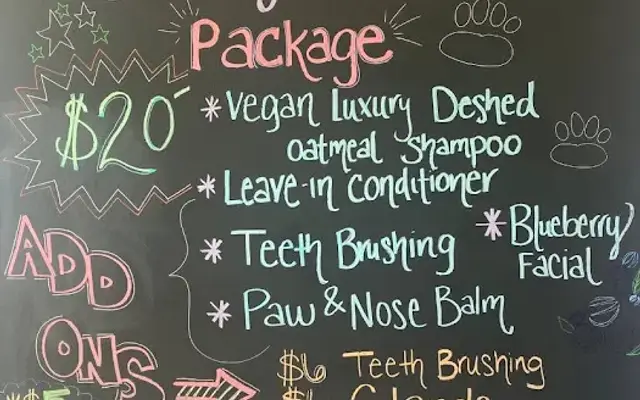 Package
$20
*Vegan Luxury Deshed
Oatmeal Shampoo
*Leave-in Conditioner
*Teeth Brushing
*Blueberry
Facial
*Paw & Nose Balm
ADD
ONS
$6 Teeth Brushing